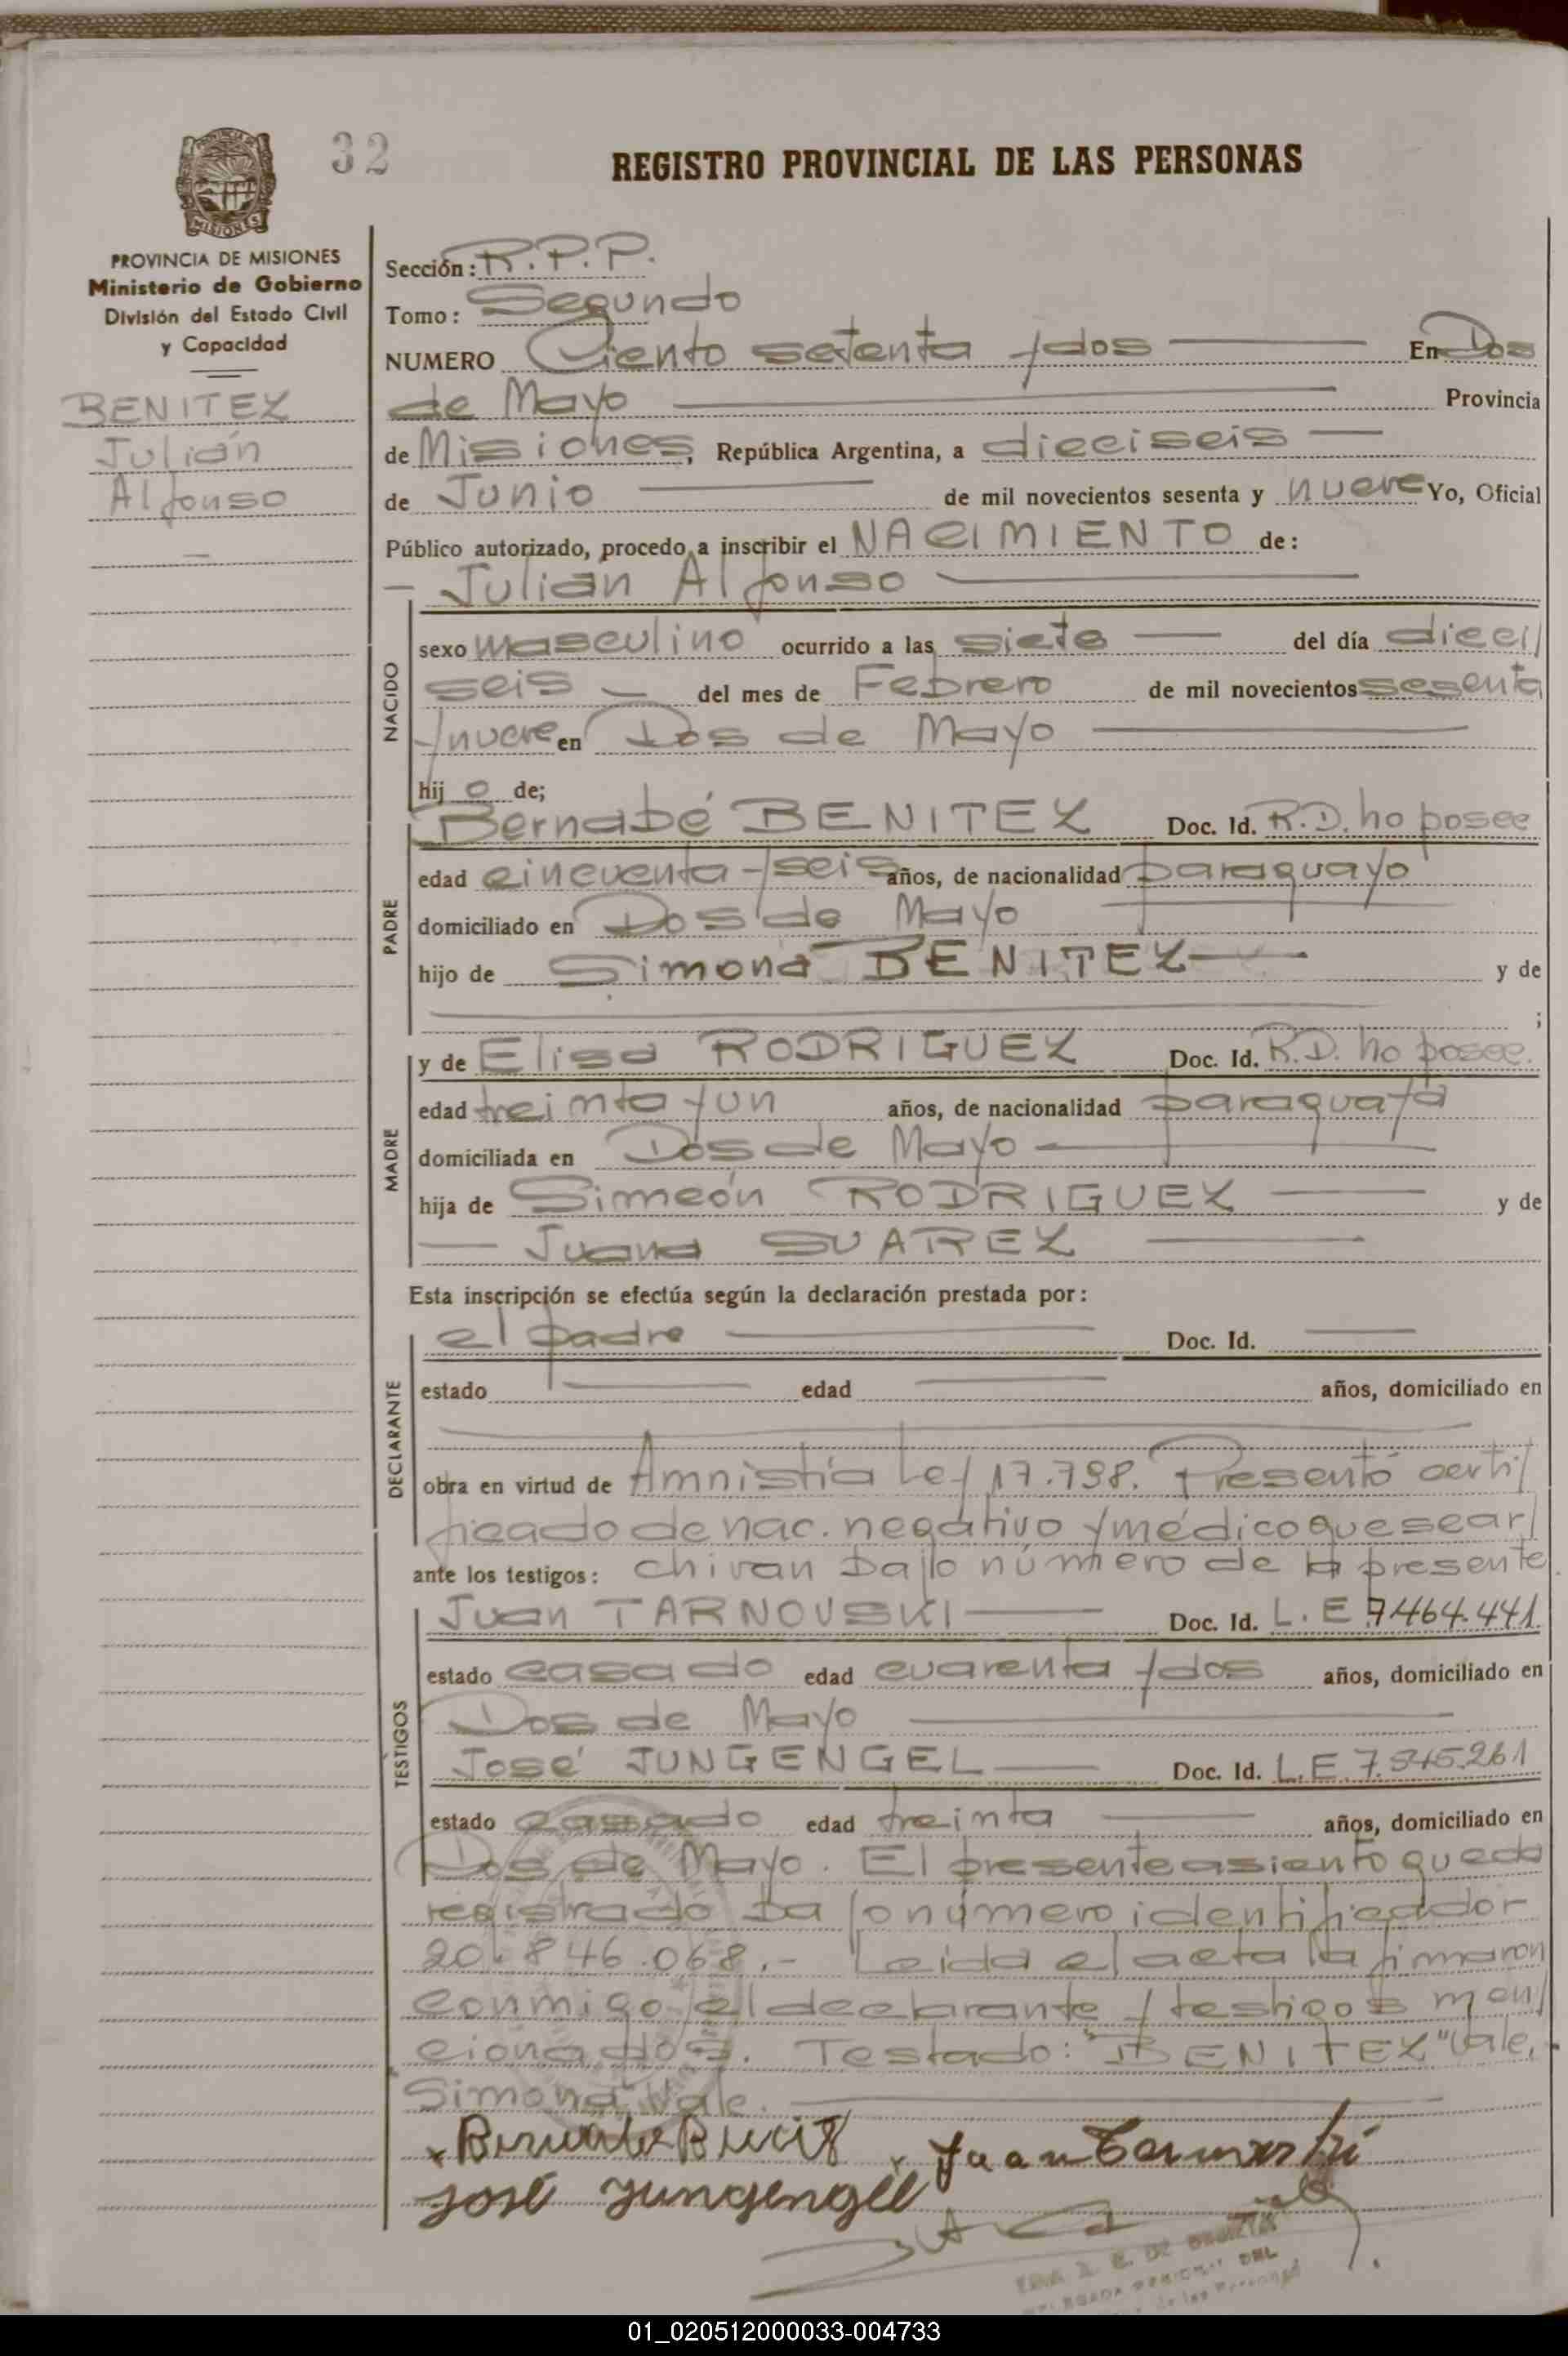 32
REGISTRO PROVINCIAL DE LAS PERSONAS
MISIONES
PROVINCIA DE MISIONES
Ministerio de Gobierno
División del Estado Civil
y Capacidad
BENITEZ
Julián
Alfonso
Sección: R.P.P.
Tomo: Segundo
NUMERO Ciento setenta y dos En Dos
de Mayo Provincia
de Misiones, República Argentina, a dieciseis
de Junio de mil novecientos sesenta y nueve Yo, Oficial
Público autorizado, procedo a inscribir el NACIMIENTO de:
Julián Alfonso
NACIDO
sexo masculino ocurrido a las siete del día dieci/
seis del mes de Febrero de mil novecientos sesenta
y nueve en Dos de Mayo
hij o de;
PADRE
Bernabé BENITEZ Doc. Id. R.D. no posee
edad cincuenta y seis años, de nacionalidad paraguayo
domiciliado en Dos de Mayo
hijo de Simona BENITEZ y de
;
MADRE
y de Elisa RODRIGUEZ Doc. Id. R.D. no posee.
edad treinta y un años, de nacionalidad paraguaya
domiciliada en Dos de Mayo
hija de Simeón RODRIGUEZ y de
Juana SUAREZ
Esta inscripción se efectúa según la declaración prestada por:
DECLARANTE
el padre Doc. Id.
estado edad años, domiciliado en
obra en virtud de Amnistía Ley 17.798. Presentó certi/
ficado de nac. negativo y médico que se ar/
ante los testigos: chivan bajo número de la presente.
TESTIGOS
Juan TARNOVSKI Doc. Id. L.E 7.464.441
estado casado edad cuarenta y dos años, domiciliado en
Dos de Mayo
José JUNGENGEL Doc. Id. L.E. 7.545.261
estado casado edad treinta años, domiciliado en
Dos de Mayo. El presente asiento queda
registrado bajo número identificador
20.846.068.- Leida el acta la firmaron
conmigo el declarante y testigos men/
cionados. Testado: "BENITEZ" Vale,
Simona, Vale.
José Jungengel
DEL
de las Personas
01_020512000033-004733